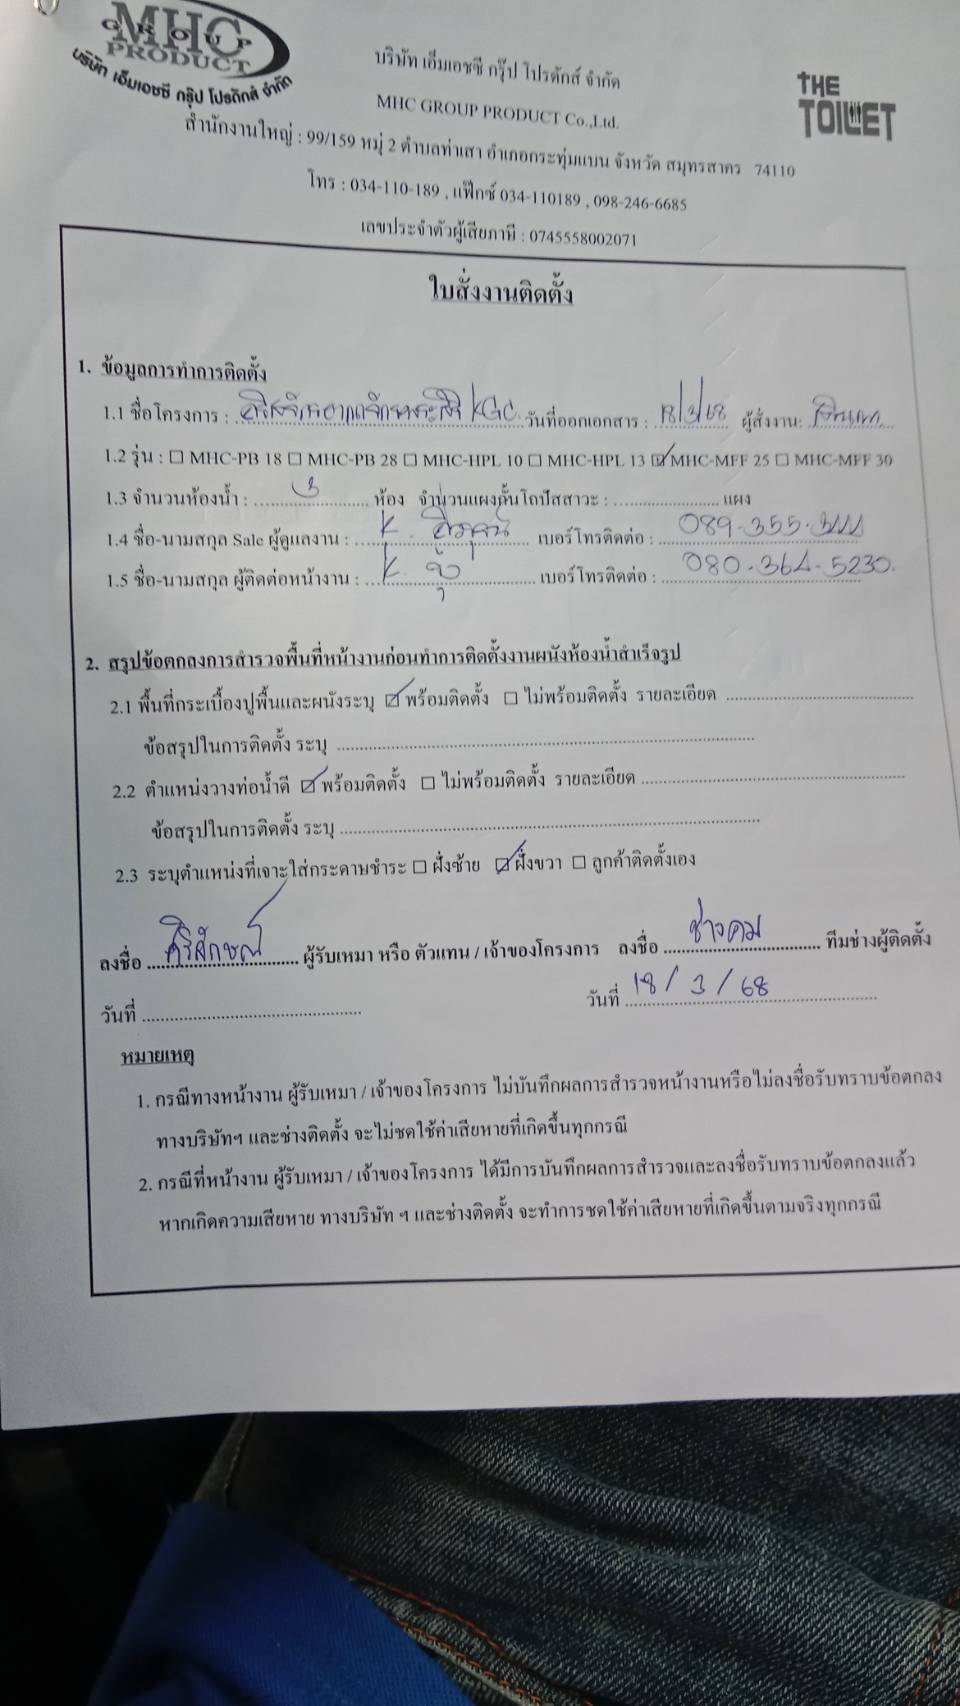 MHC
GROUP
PRODUCT
บริษัท เอ็มเอชซี กรุ๊ป โปรดักส์ จำกัด
THE
TOILET
บริษัท เอ็มเอชซี กรุ๊ป โปรดักส์ จำกัด
MHC GROUP PRODUCT Co.,Ltd.
สำนักงานใหญ่ : 99/159 หมู่ 2 ตำบลท่าเสา อำเภอกระทุ่มแบน จังหวัด สมุทรสาคร 74110
โทร : 034-110-189 , แฟ็กซ์ 034-110189 , 098-246-6685
เลขประจำตัวผู้เสียภาษี : 0745558002071
ใบสั่งงานติดตั้ง
1. ข้อมูลการทำการติดตั้ง
1.1 ชื่อโครงการ : KGC วันที่ออกเอกสาร : 18/3/68 ผู้สั่งงาน:
1.2 รุ่น : ☐ MHC-PB 18 ☐ MHC-PB 28 ☐ MHC-HPL 10 ☐ MHC-HPL 13 ☑ MHC-MFF 25 ☐ MHC-MFF 30
1.3 จำนวนห้องน้ำ : 3 ห้อง จำนวนแผงกั้นโถปัสสาวะ : ........ แผง
1.4 ชื่อ-นามสกุล Sale ผู้ดูแลงาน : K. เบอร์โทรติดต่อ : 089-355-3111
1.5 ชื่อ-นามสกุล ผู้ติดต่อหน้างาน : K. เบอร์โทรติดต่อ : 080-364-5230.
2. สรุปข้อตกลงการสำรวจพื้นที่หน้างานก่อนทำการติดตั้งงานผนังห้องน้ำสำเร็จรูป
2.1 พื้นที่กระเบื้องปูพื้นและผนังระบุ ☑ พร้อมติดตั้ง ☐ ไม่พร้อมติดตั้ง รายละเอียด ........
ข้อสรุปในการติดตั้ง ระบุ ........
2.2 ตำแหน่งวางท่อน้ำดี ☑ พร้อมติดตั้ง ☐ ไม่พร้อมติดตั้ง รายละเอียด ........
ข้อสรุปในการติดตั้ง ระบุ ........
2.3 ระบุตำแหน่งที่เจาะใส่กระดาษชำระ ☐ ฝั่งซ้าย ☑ ฝั่งขวา ☐ ลูกค้าติดตั้งเอง
ลงชื่อ ศิริลักษณ์ ผู้รับเหมา หรือ ตัวแทน / เจ้าของโครงการ ลงชื่อ ช่างคม ทีมช่างผู้ติดตั้ง
วันที่ ........ วันที่ 18 / 3 / 68
หมายเหตุ
1. กรณีทางหน้างาน ผู้รับเหมา / เจ้าของโครงการ ไม่บันทึกผลการสำรวจหน้างานหรือไม่ลงชื่อรับทราบข้อตกลง
ทางบริษัทฯ และช่างติดตั้ง จะไม่ชดใช้ค่าเสียหายที่เกิดขึ้นทุกกรณี
2. กรณีที่หน้างาน ผู้รับเหมา / เจ้าของโครงการ ได้มีการบันทึกผลการสำรวจและลงชื่อรับทราบข้อตกลงแล้ว
หากเกิดความเสียหาย ทางบริษัท ฯ และช่างติดตั้ง จะทำการชดใช้ค่าเสียหายที่เกิดขึ้นตามจริงทุกกรณี